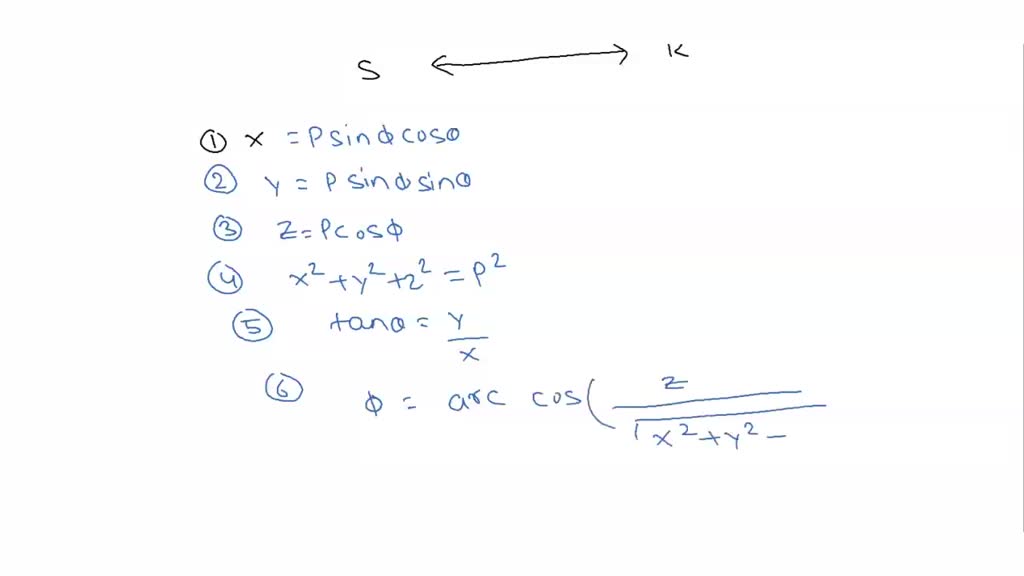 S ⟷ K
① x = P sinϕ cosθ
② y = P sinϕ sinθ
③ z = P cosϕ
④ x² + y² + z² = P²
⑤ tanθ = y/x
⑥ ϕ = arc cos( z / √x² + y² −